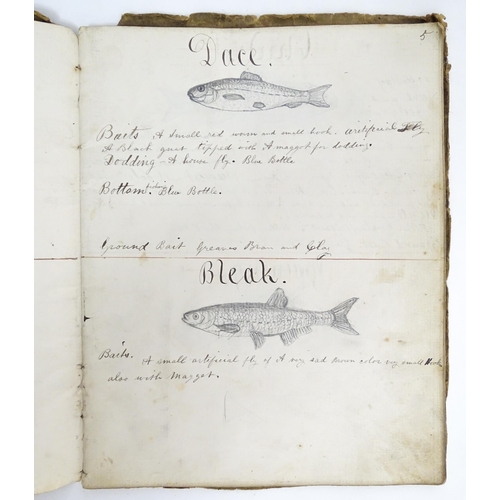 5
Dace.
Baits A small red worm and small hook. artificial fly
A Black gnat tipped with A maggot for dodding.
Dodding - A house fly. Blue Bottle
Bottom fishing Blue Bottle.
Ground Bait Greaves Bran and Clay
Bleak.
Baits. A small artificial fly of A very sad Brown color very small Hook
alos with Maggot.